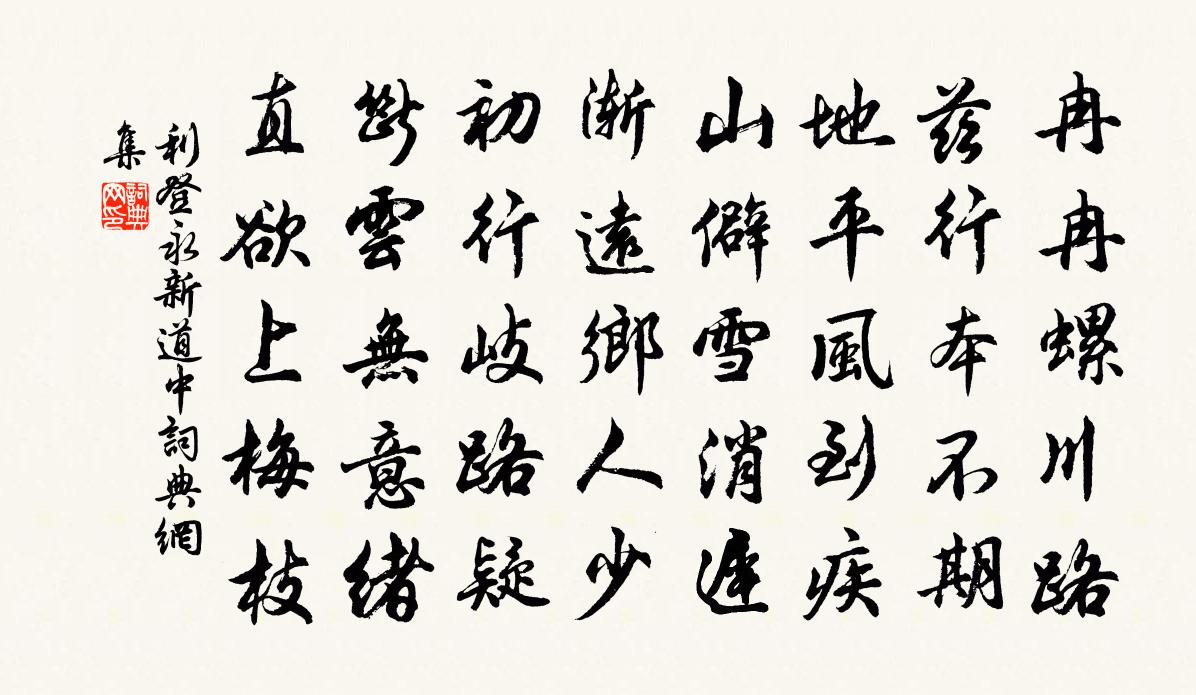 冉冉螺川路
茲行本不期
地平風到疾
山僻雪消遲
漸遠鄉人少
初行岐路疑
斷雲無意緒
直欲上梅枝
利登永新道中詞典網
集
詞典
网印